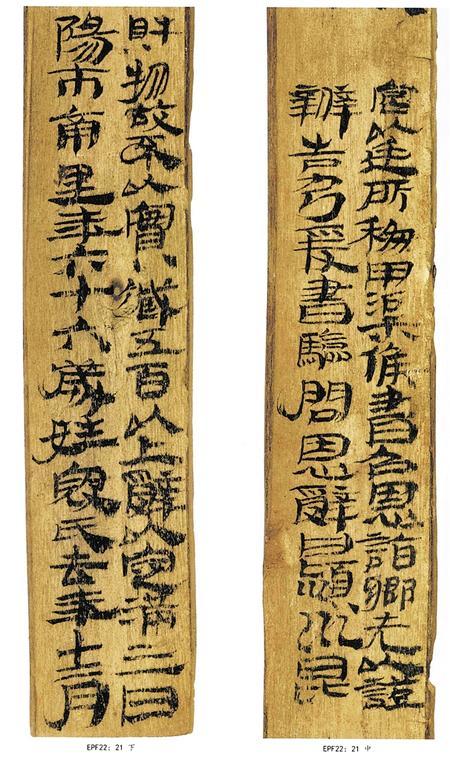 宮以廷所移甲渠候書召恩詣鄉先以證
辨告乃爰書驗問恩辭曰潁川昆
財物故不以實臧五百以上辭以定滿三日
陽市南里年六十六歲姓寇氏去年十二月
EPF22:21 中
EPF22:21 下